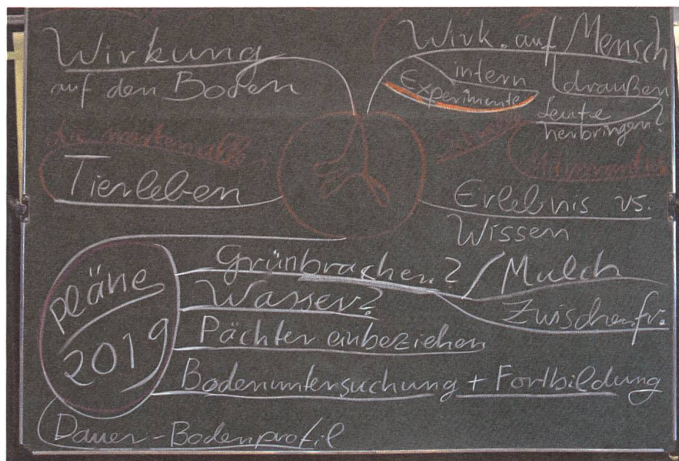 Wirkung
auf den Boden
Wirk. auf Mensch
intern
Experimente
draußen
Leute
herbringen?
Tierleben
Erlebnis vs.
Wissen
Pläne
2019
Grünbrachen? / Mulch
Zwischenfr.
Wasser?
Pächter einbeziehen
Bodenuntersuchung + Fortbildung
Dauer-Bodenprofil